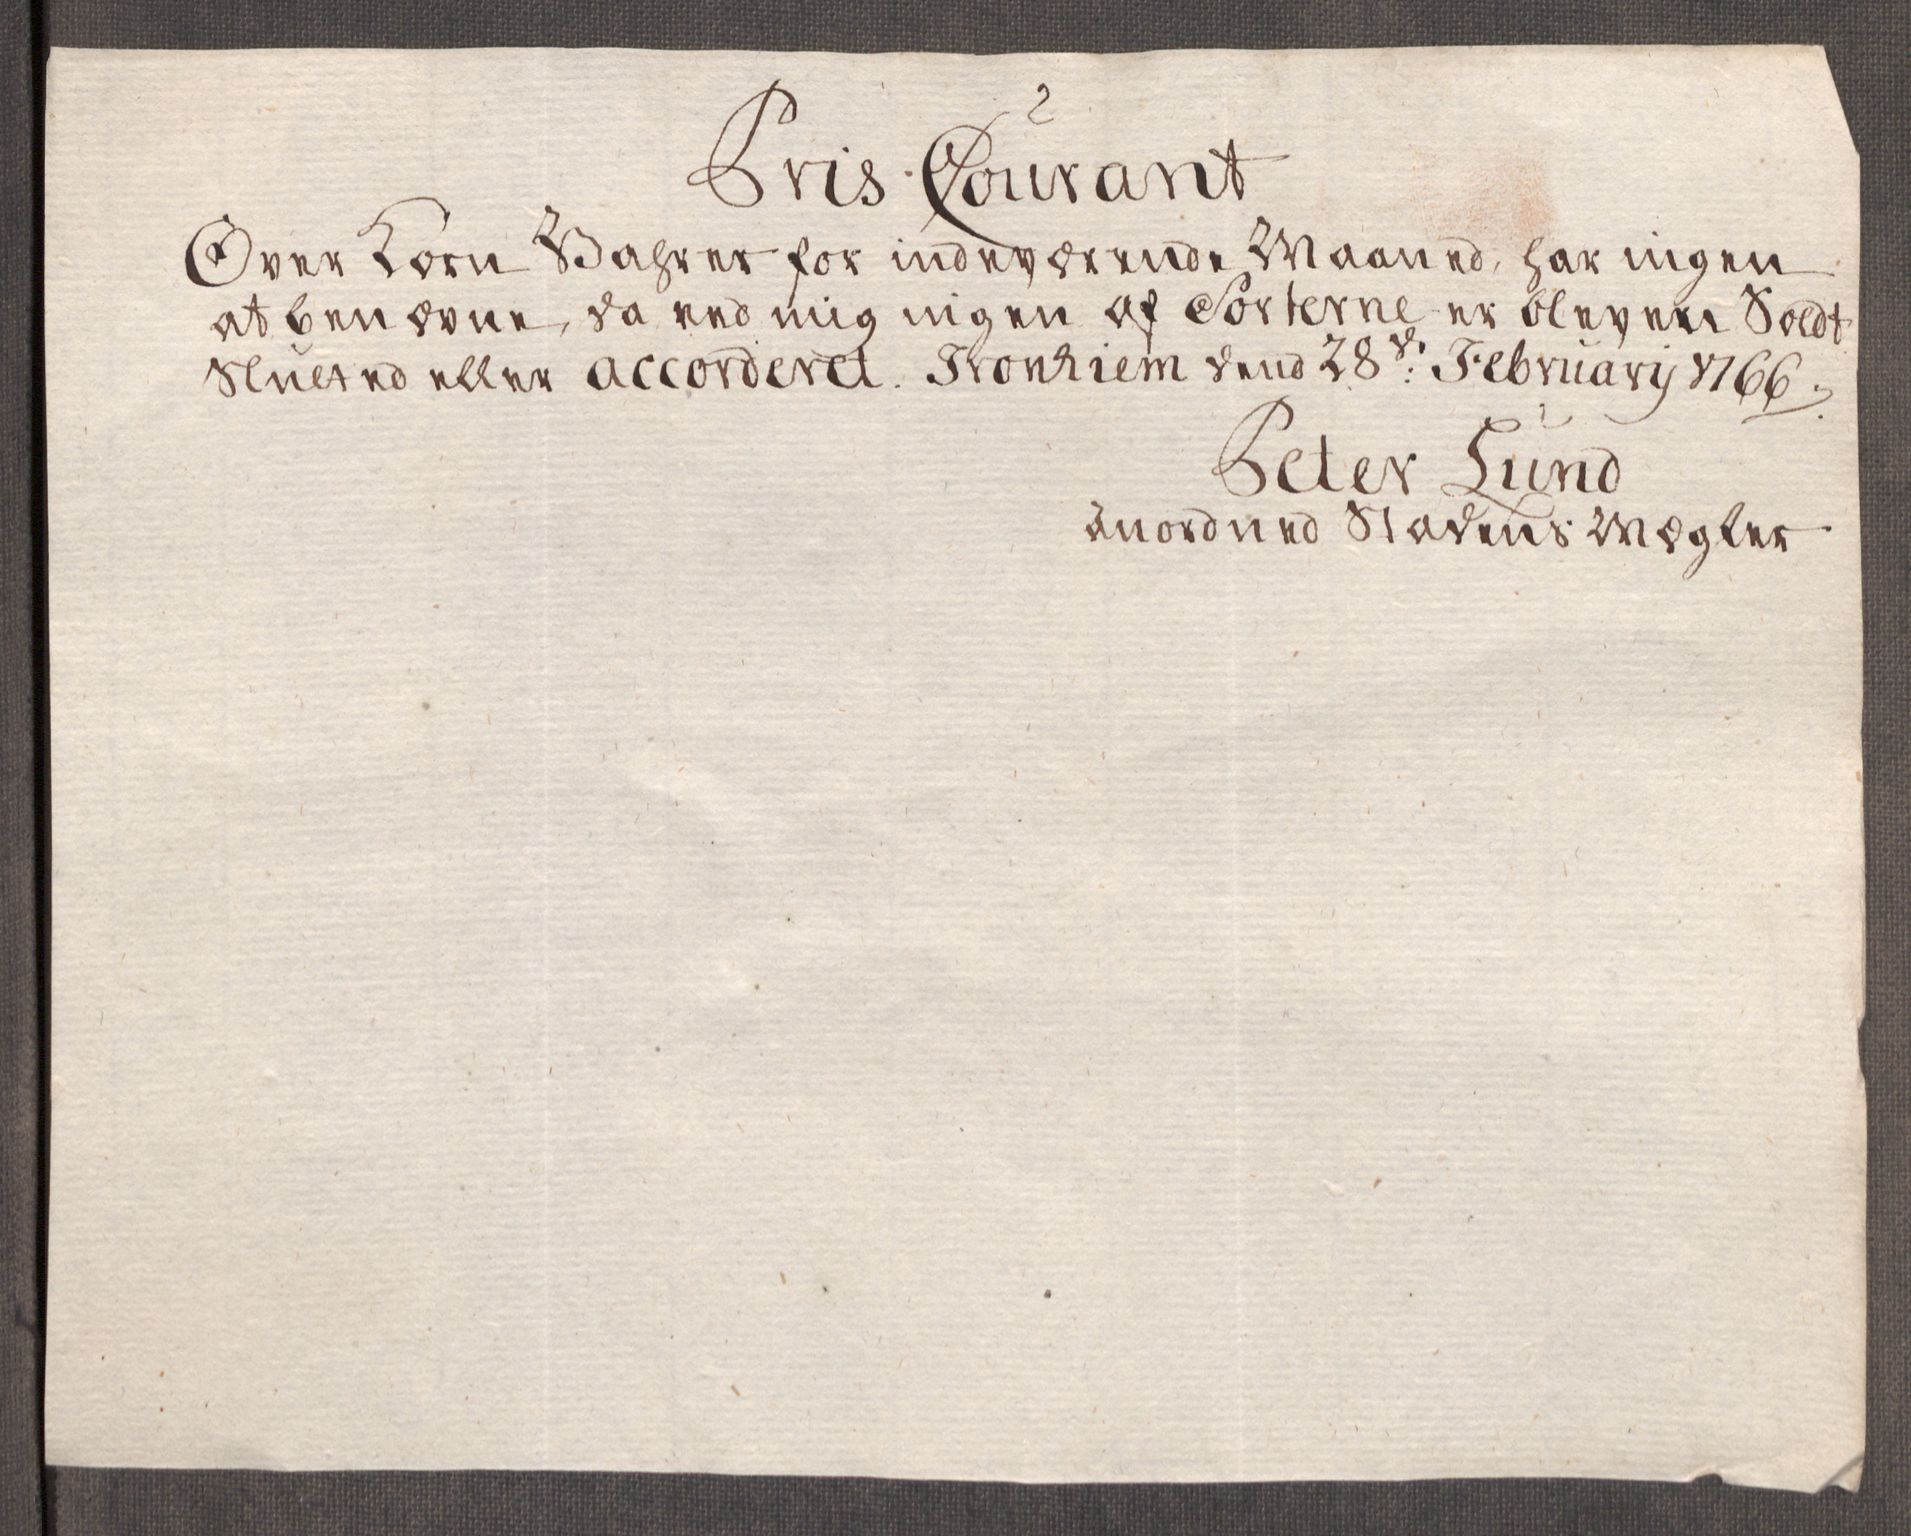 Pris Courant
Over Korn Wahrer for indeværende Maaned, har ingen
at benævne, da ved mig ingen af Sorterne er bleven Soldt
Slutted eller accorderet. Tronhiem dend 28de: February 1766.
Peter Lund
anordned Stadens Mægler